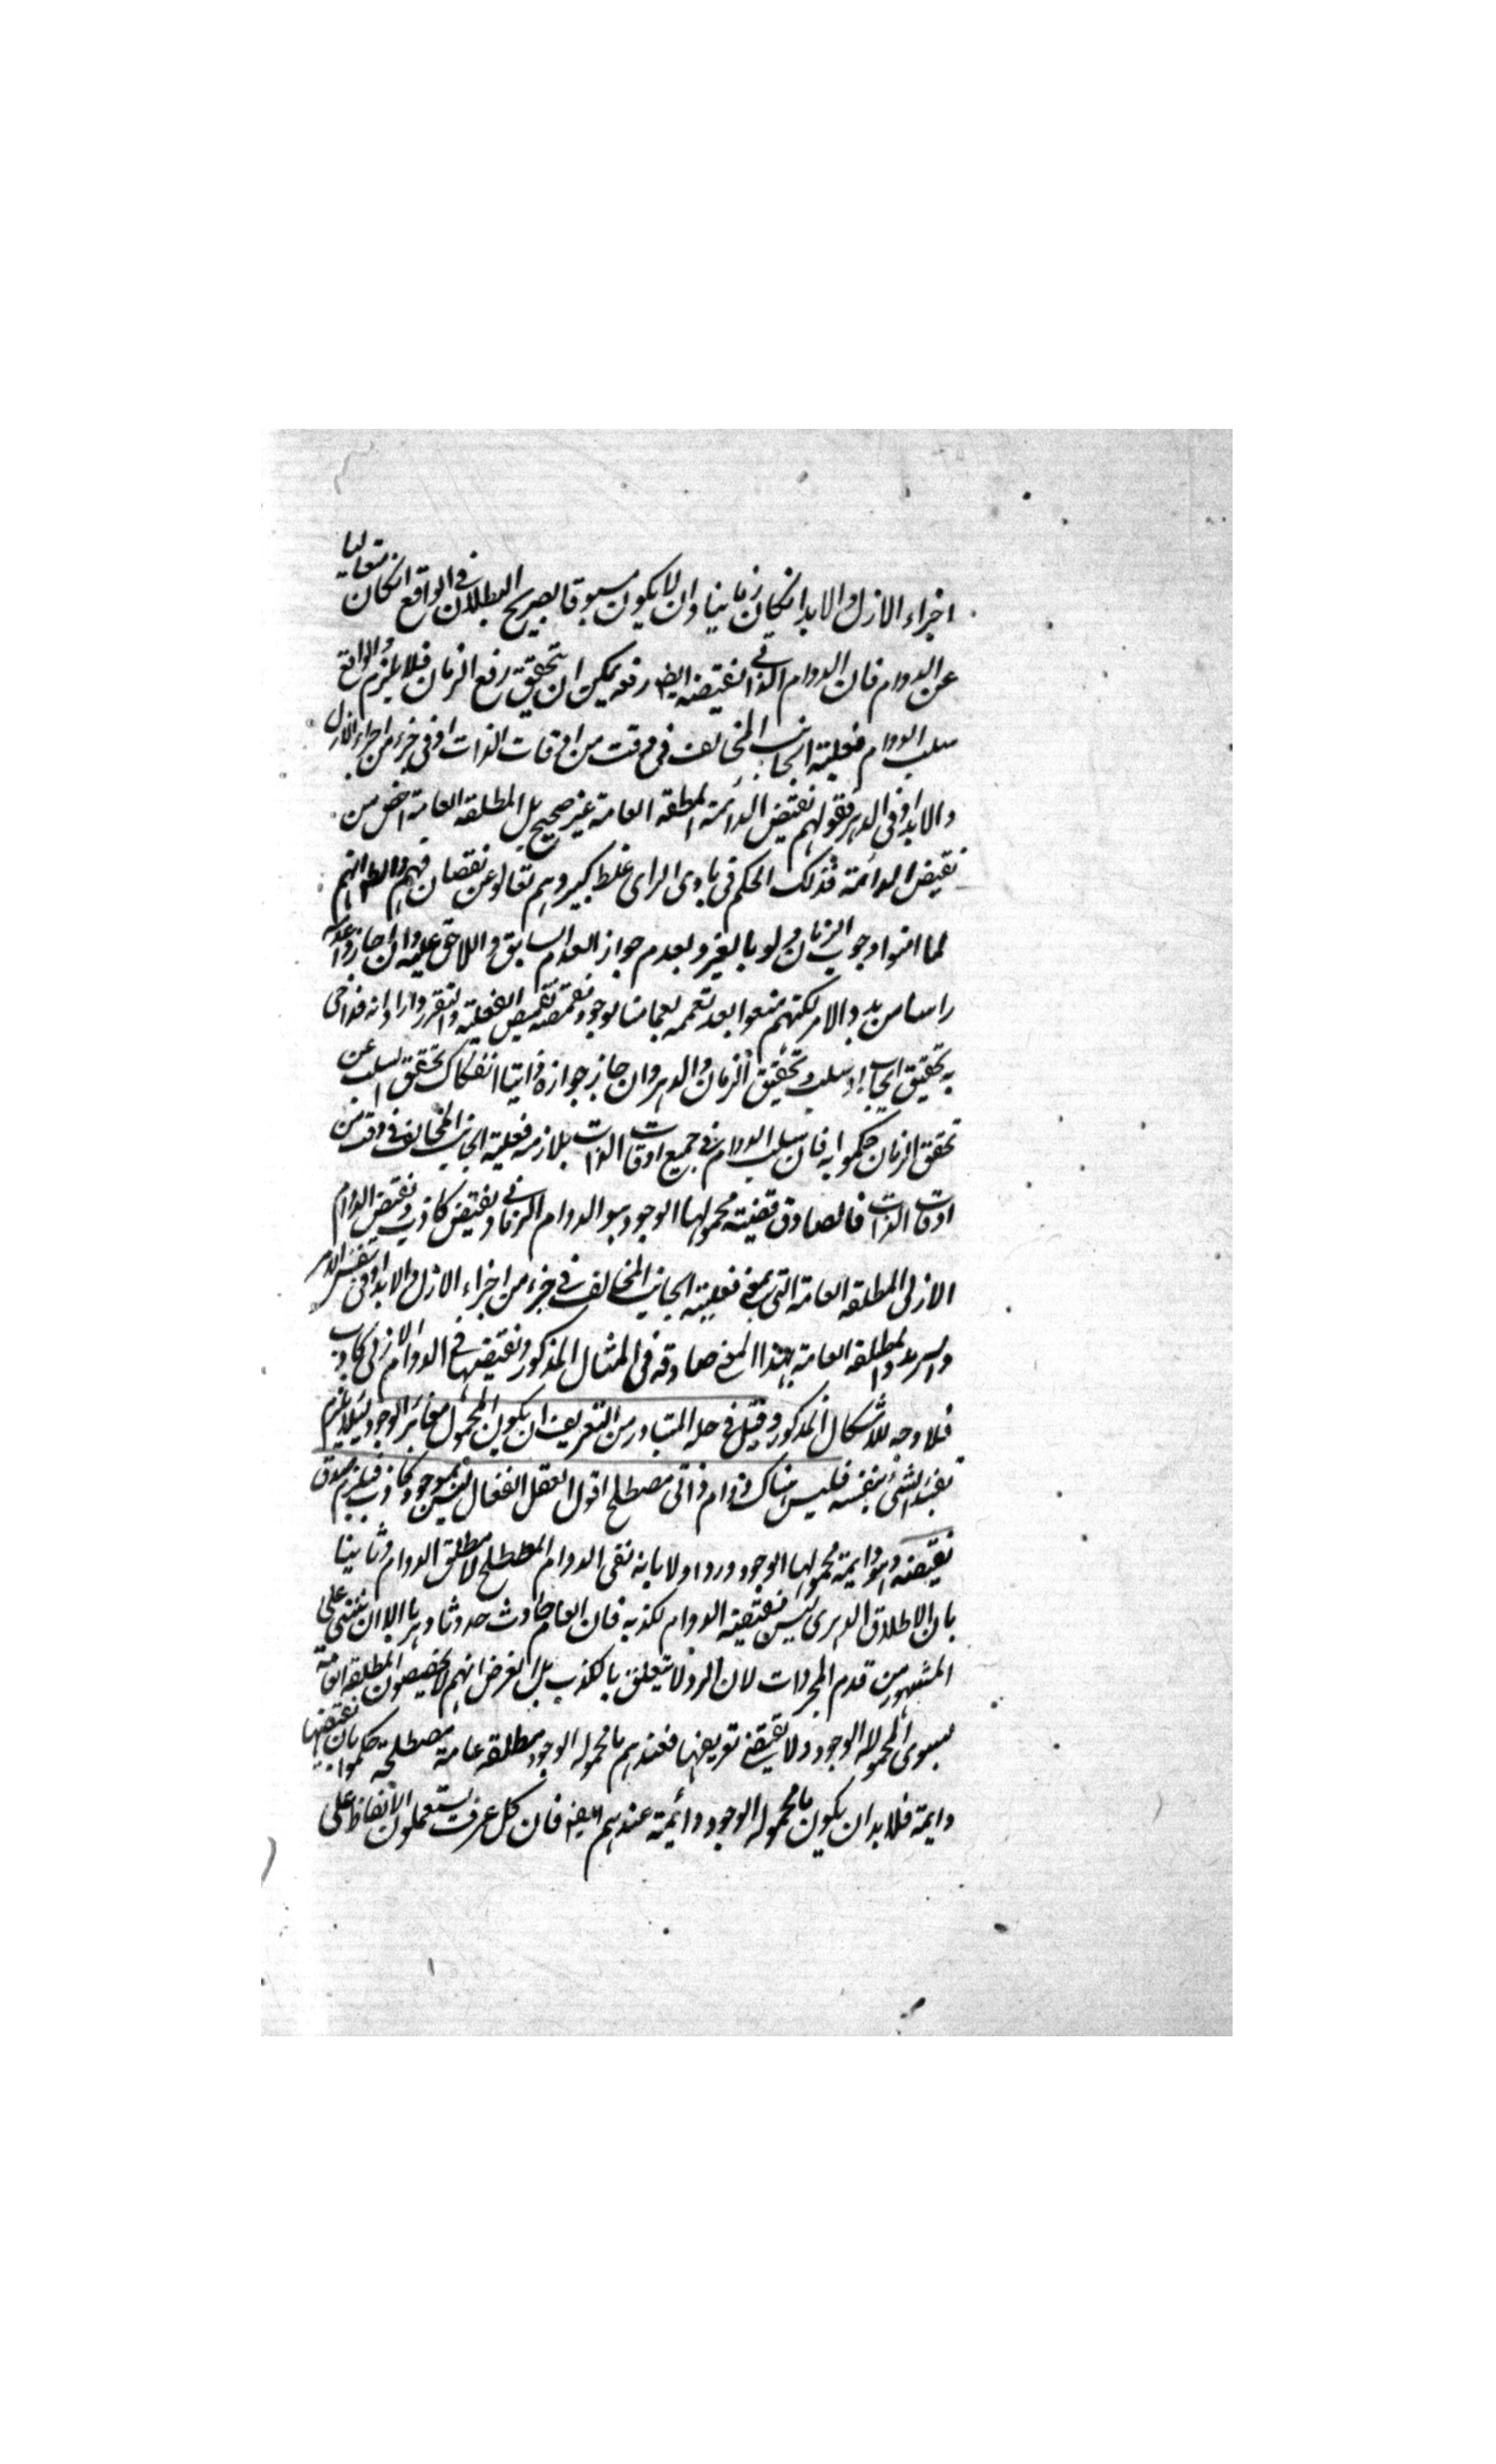 اجزاء الازل والابد انكان زمانيا وان لا يكون مسبوقا بصريح البطلان في الواقع انكان متعاليا
عن الدوام فان الدوام الذاتي نقيضه ايضا رفعه يمكن ان يتحقق برفع الزمان فلا يلزم والواقع
سلب الدوام فعلية الجانب المخالف في وقت من اوقات الذات او في جزء من اجزاء الازل
والابد او في الدهر فقولهم نقيض الدائمة المطلقة العامة غير صحيح بل المطلقة العامة اخص من
نقيض الدائمة فذلك الحكم في بادى الراى غلط كبير وهم تعالوا عن نقصان فهم والظ انهم
لما امنوا بوجوب الزمان ولو بالغير وبعدم جواز العدم السابق واللاحق عليه وان جاز عدمه
راسا من بدو الامر لكنهم منعوا بعد تعممه بعمامة الوجود نقمصه تقمص الفعلية والتقرر وارادانه
به تحقيق ايجاب او سلب وتحقيق الزمان والدهر وان جاز جوازه ذاتيا انفكاك تحقق السلب عن
تحقق الزمان حكموا به فان سلب الدوام في جميع اوقات الذات يلازمه فعلية الجانب المخالف في وقت من
اوقات الذات فالصادق قضيته محمولها الوجود هو الدوام الزماني ونقيض كاذب ونقيض الدوام
الازلى المطلقة العامة التي بمعنى فعلية الجانب المخالف في جزء من اجزاء الازل والابد او في نفس الدهر
والسرمد والمطلقة العامة بهذا المعنى صادقة في المثال المذكور ونقيضها في الدوام الازلى كاذب
فلا وجه للاشكال المذكور وقيل في حله المتبادر من التعريف ان يكون المحمول مغاير الوجود لئلا يلزم
تقييد الشئ بنفسه فليس هناك دوام ذاتي مصطلح اقول العقل الفعال ليس بموجود كاذب فيلزم صدق
نقيضه وهو دايمة محمولها الوجود ورد اولا بانه نفى الدوام المصطلح لا مطلق الدوام وثانيا
بان الاطلاق الدهرى ليس نقيضه الدوام لكذبه فان العام حادث حدوثا دهريا الا ان يبتنى على
المشهور من قدم المجردات لان الرد لا يتعلق بالكذب بل الغرض انهم لا يخصصون المطلقة العامة
بسوى المحموله الوجود ولا يقتضى تعريفها فعندهم ما محموله الوجود مطلقه عامة مصطلحة حكموا بان نقيضها
دايمة فلابد ان يكون ما محموله الوجود دائمة عندهم ايضا فان كل عرف يستعملون الالفاظ على